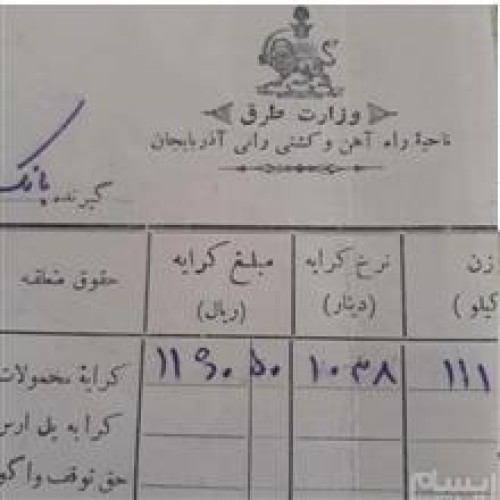 وزارت طرق
ناحیهٔ راه آهن و کشتی رانی آذربایجان
گیرنده بانک
زن نرخ کرایه مبلغ کرایه حقوق متعلقه
کیلو) (دینار) (ریال)
۱۱۱ ۱۰۳۸ ۵۰ ۱۱۶۰ کرایهٔ محمولات
کرایه پل ارس
حق توقف واگو
ایسام